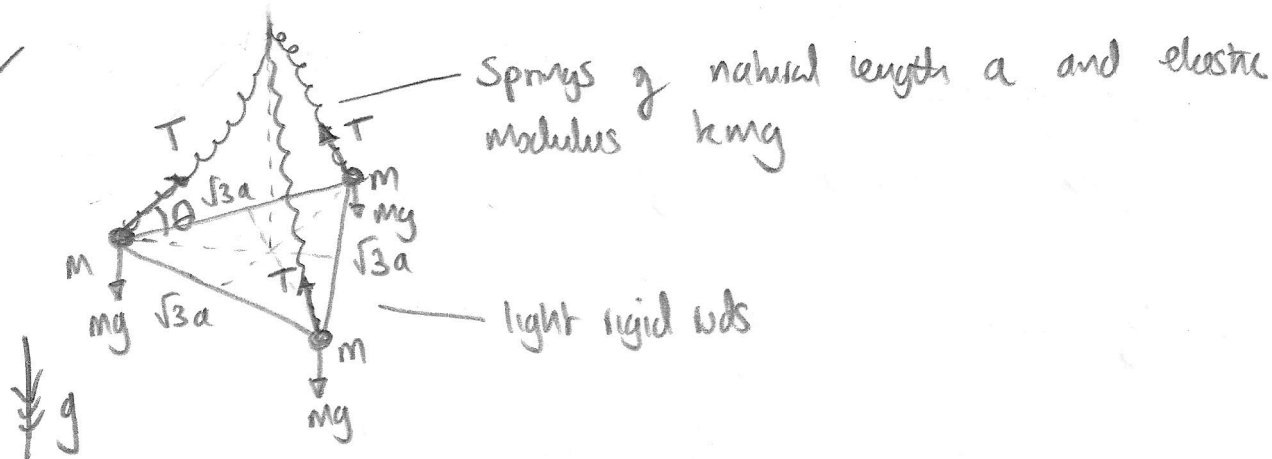 Springs of natural length a and elastic
modulus kmg
T
T
√3a
m
θ
mg
m
T
√3a
mg
√3a
light rigid rods
m
g
mg